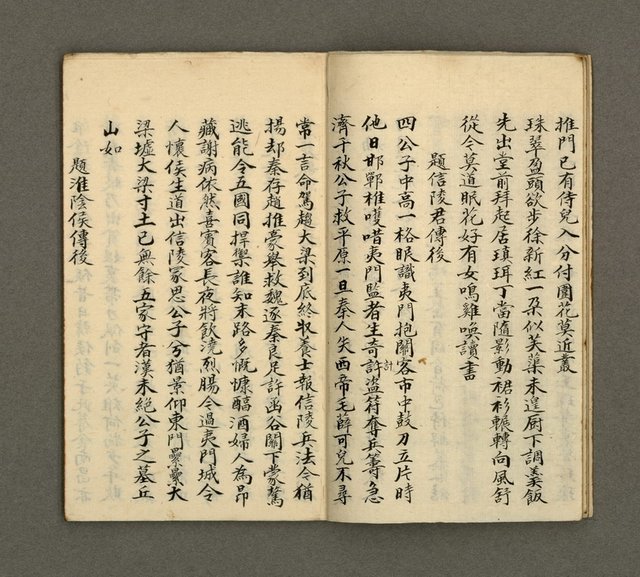 推門已有侍兒入分付園花莫近叢
珠翠盈頭欲步徐新紅一朶似芙蕖未遑厨下調羹飯
先出堂前拜起居瑱珥丁當隨影動裙衫輾轉向風舒
從今莫道眠花好有女鳴雞喚讀書
題信陵君傳後
四公子中高一格眼識夷門抱關客市中鼓刀立片時
他日邯鄲椎嚄唶夷門監者生奇計許盜符奪兵籌急
濟千秋公子救平原一旦秦人失西帝毛薛可兒不尋
常一言命駕趨大梁到底終收養士報信陵兵法令猶
揚却秦存趙推豪舉救魏逐秦良足許函谷關下蒙驁
逃能令五國同捍禦誰知末路多慨慷醇酒婦人為昂
藏謝病依然喜賓客長夜將飲澆烈腸今過夷門城令
人懷侯生道出信陵冢思公子兮猶景仰東門纍纍大
梁墟大梁寸土已無餘五家守者漢未絕公子之墓丘
山如
題淮陰侯傳後